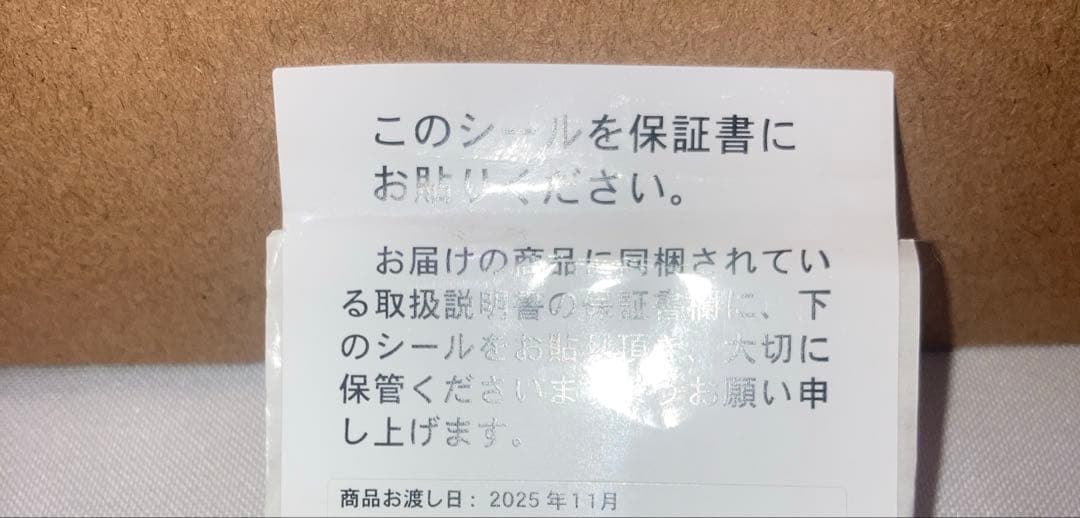 このシールを保証書に
お貼りください。
お届けの商品に同梱されてい
る取扱説明書の保証書欄に、下
のシールをお貼り頂き、大切に
保管くださいますようお願い申
し上げます。
商品お渡し日：2025年11月